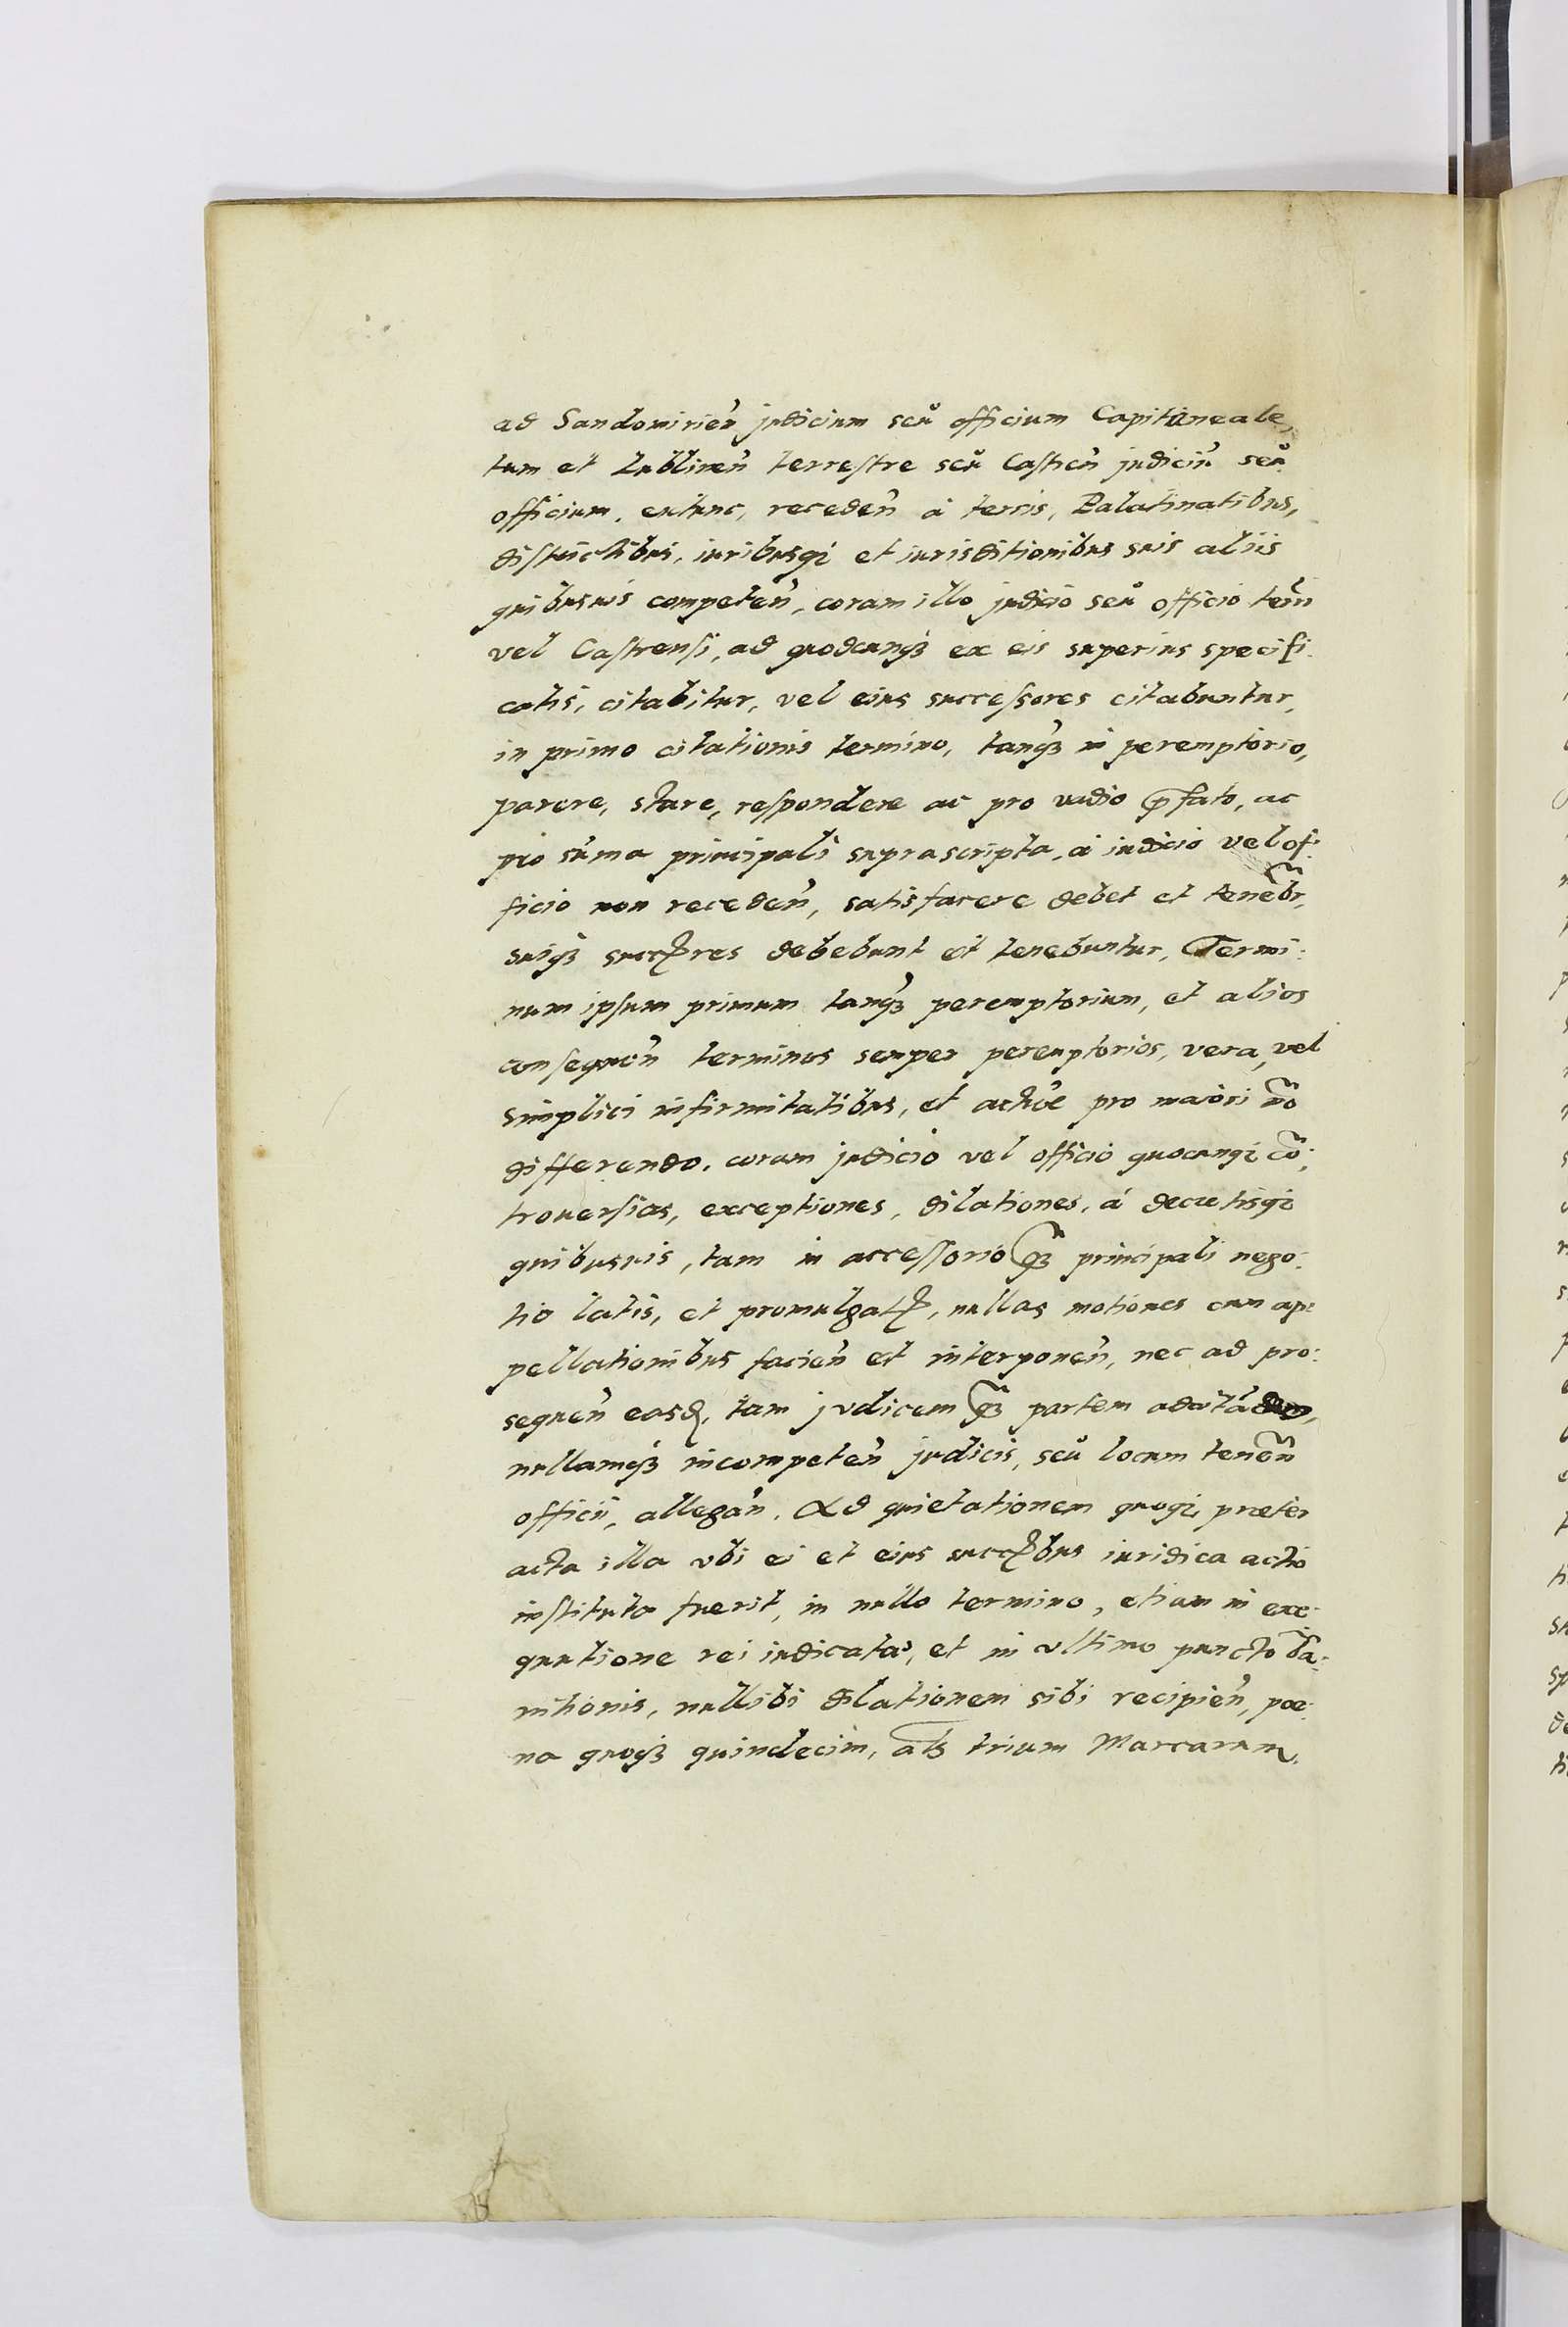 ad Sandomirień judicium seŭ officium Capitaneale,
tum et Lublineń terrestre seŭ Castreń judiciũ seŭ
officium, extunc, recedeń à terris, Palatinatibus,
districtibus, iuribusq; et iurisditionibus suis aliis
quibusuis competeń, coram illo judicio seŭ officio terri
vel Castrensi, ad quodcunq3 ex eis superius specifi:
catis, citabitur, vel eius successores citabuntur,
in primo citationis termino, tanq3 in peremptorio,
parere, stare, respondere ac pro vadio p̃fato, ac
pro sũma principali suprascripta, a iudicio vel of:
ficio non recedeń, satisfacere debet et tenebr̃,
suiq3 succ̃res debebunt et tenebuntur, Termi:
num ipsum primum tanq3 peremptorium, et alios
consequeń terminos semper peremptorios, vera, vel
simplici infirmitatibus, et actõe pro maiori nõ
differendo, coram judicio vel officio quocunq; cõ:
trouersias, exceptiones, dilationes, á decretisq;
quibusuis, tam in accessorio q̃3 principali nego:
tio latis, et promulgat̃, nullas motiones cum ap:
pellationibus facień et interponeń, nec ad pro:
sequeń easd, tam judicem q̃3 partem adcitãdo,
nullamq3 incompeteń judicis, seŭ locum teneń
officii, allegań. Ad quietationem quoq;, præter
acta illa vbi ei et eius succ̃bus iuridica actio
instituta fuerit, in nullo termino, etiam in exe:
quutione rei iudicatæ, et in vltimo puncto bã:
nitionis, nullibi dilationem sibi recipień, poe:
na quoq3 quindecim, als̃ trium Marcarum,